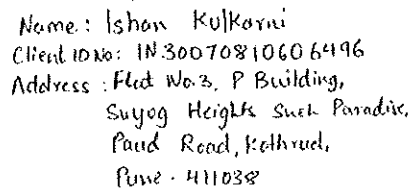 Name: Ishan Kulkarni
Client ID No: IN.30070810606496
Address: Flat No.3, P Building,
Suyog Heights Such Paradise,
Paud Road, Kothrud,
Pune - 411038